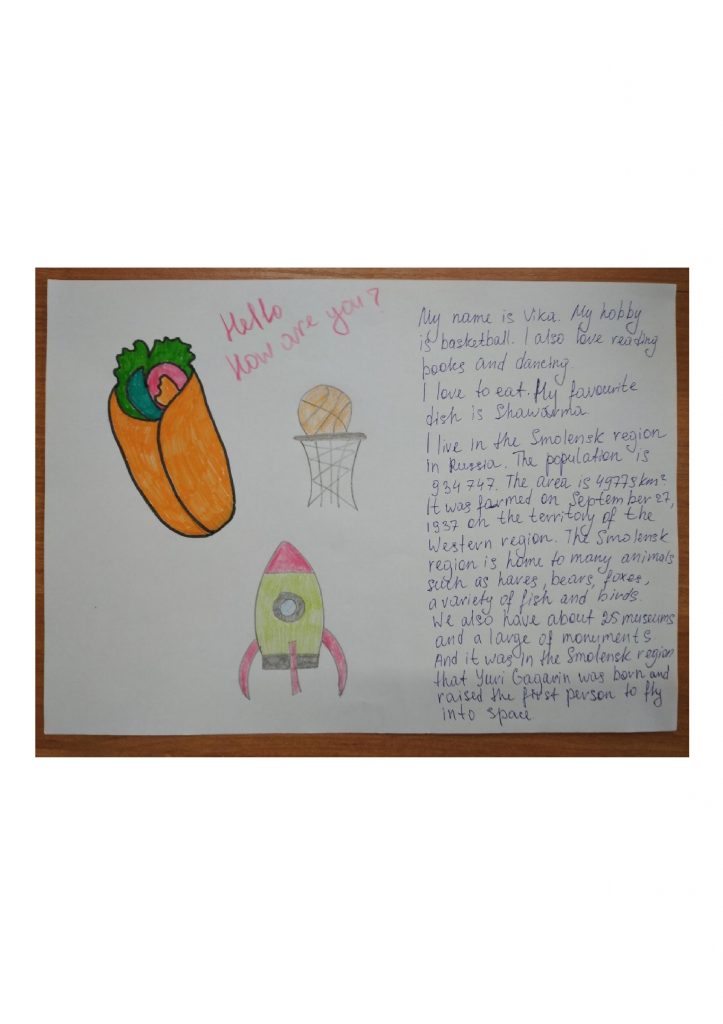 Hello
How are you?
My name is Vika. My hobby
is basketball. I also love reading
books and dancing.
I love to eat. My favourite
dish is Shawarma.
I live in the Smolensk region
in Russia. The population is
934 747. The area is 49779 km²
It was farmed on September 27,
1937 on the territory of the
Western region. The Smolensk
region is home to many animals
such as hares, bears, foxes,
a variety of fish and birds.
We also have about 25 museums
and a large of monuments
And it was in the Smolensk region
that Yuri Gagarin was born and
raised the first person to fly
into space